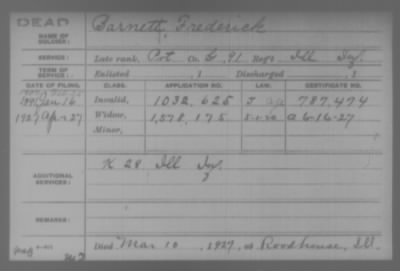 DEAD
NAME OF SOLDIER: Barnett, Frederick
SERVICE: Late rank, Pvt Co. G, 91 Reg't Ill Inf.
TERM OF SERVICE: Enlisted , 1 Discharged , 1
DATE OF FILING. CLASS. APPLICATION NO. LAW. CERTIFICATE NO.
1891 Jan 16 Invalid, 1032,625 787,474
1927 Apr 27 Widow, 1,578,175 a 6-16-27
Minor,
ADDITIONAL SERVICES: K 28 Ill Inf.
REMARKS:
Died Mar 10, 1927, at Roodhouse, Ill.